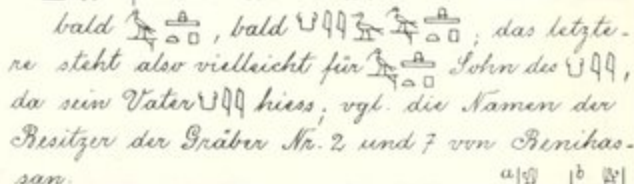 bald , bald ; das letzte-
re steht also vielleicht für Sohn des ,
da sein Vater hiess; vgl. die Namen der
Besitzer der Gräber Nr. 2 und 7 von Benihas-
san. a b